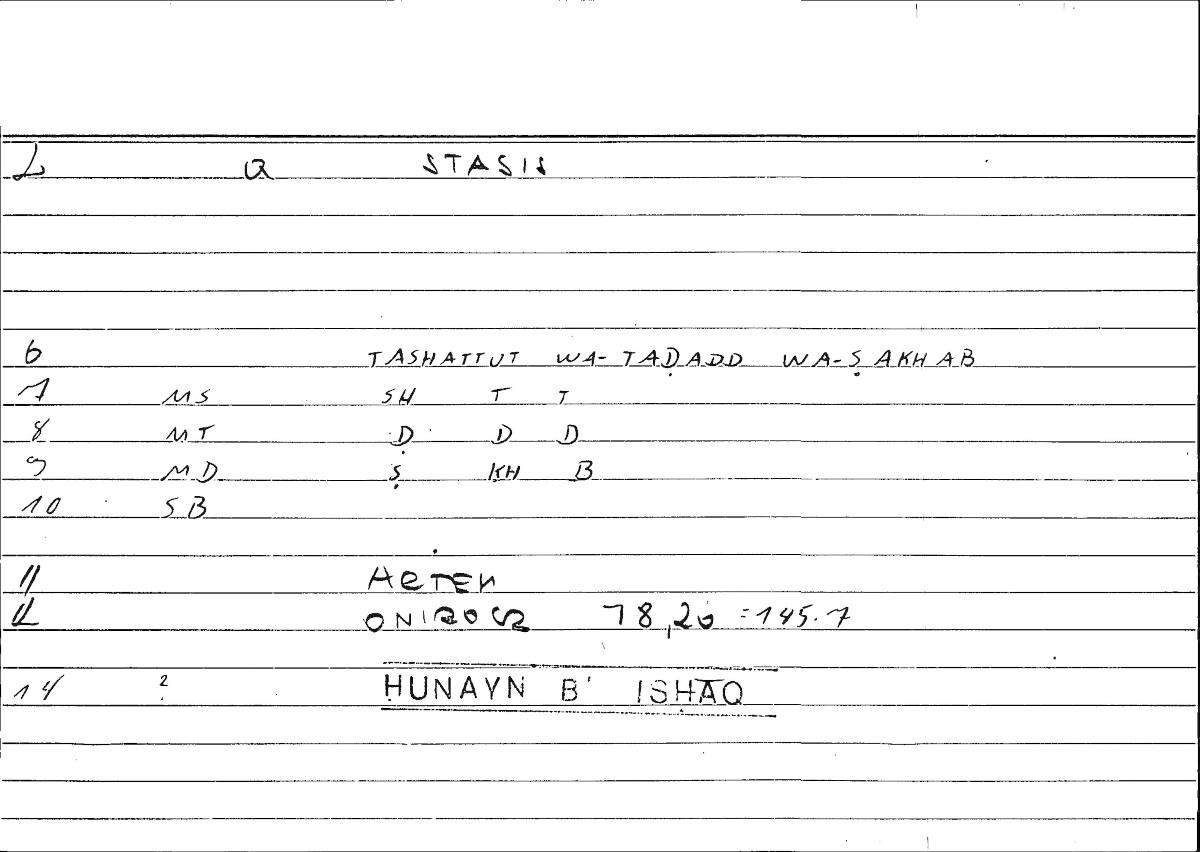 2 Q STASIS
6 TASHATTUT WA-TAḌADD WA-ṢAKHAB
7 MS SH T T
8 MT Ḍ D D
9 MD Ṣ KH B
10 SB
11 ARTEM
12 ONIROCR 78,20 =145.7
14 2 ḤUNAYN B' ISḤĀQ